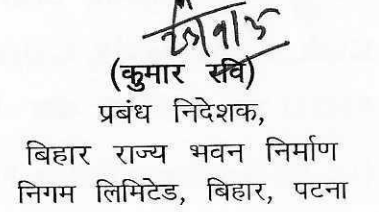 (कुमार रवि)
प्रबंध निदेशक,
बिहार राज्य भवन निर्माण
निगम लिमिटेड, बिहार, पटना